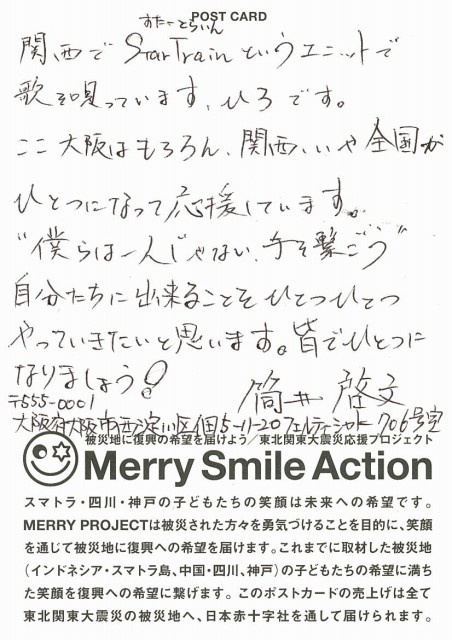 POST CARD
すたーとらいん
関西で StarTrain というユニットで
歌を唄っています、ひろです。
ここ大阪はもちろん、関西、いや全国が
ひとつになって応援しています。
“僕らは一人じゃない、手を繋ごう”
自分たちに出来ることをひとつひとつ
やっていきたいと思います。皆でひとつに
なりましょう!
筒井 啓文
〒555-0001
大阪府大阪市西淀川区佃5-11-20 706号室
被災地に復興の希望を届けよう/東北関東大震災応援プロジェクト
Merry Smile Action
スマトラ・四川・神戸の子どもたちの笑顔は未来への希望です。
MERRY PROJECTは被災された方々を勇気づけることを目的に、笑顔
を通じて被災地に復興への希望を届けます。これまでに取材した被災地
(インドネシア・スマトラ島、中国・四川、神戸)の子どもたちの希望に満ち
た笑顔を復興への希望に繋げます。このポストカードの売上げは全て
東北関東大震災の被災地へ、日本赤十字社を通して届けられます。